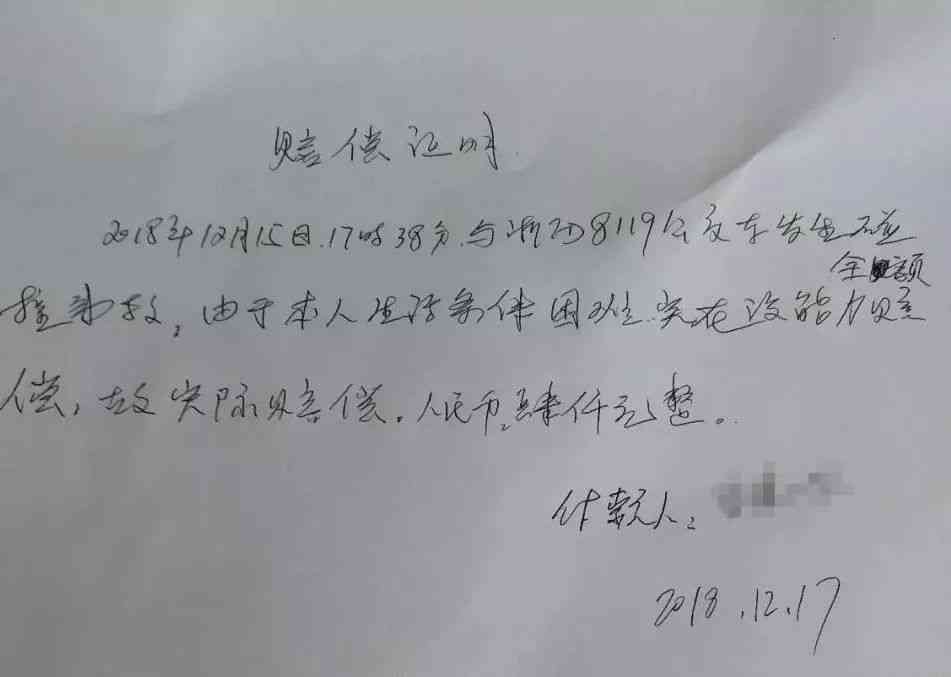 赔偿证明
2018年12月15日.17时38分.与浙8119公交车发生碰
全额
撞事故，由于本人生活条件困难实在没能力赔
偿，故实际赔偿。人民币：肆仟元整。
付款人：
2018.12.17